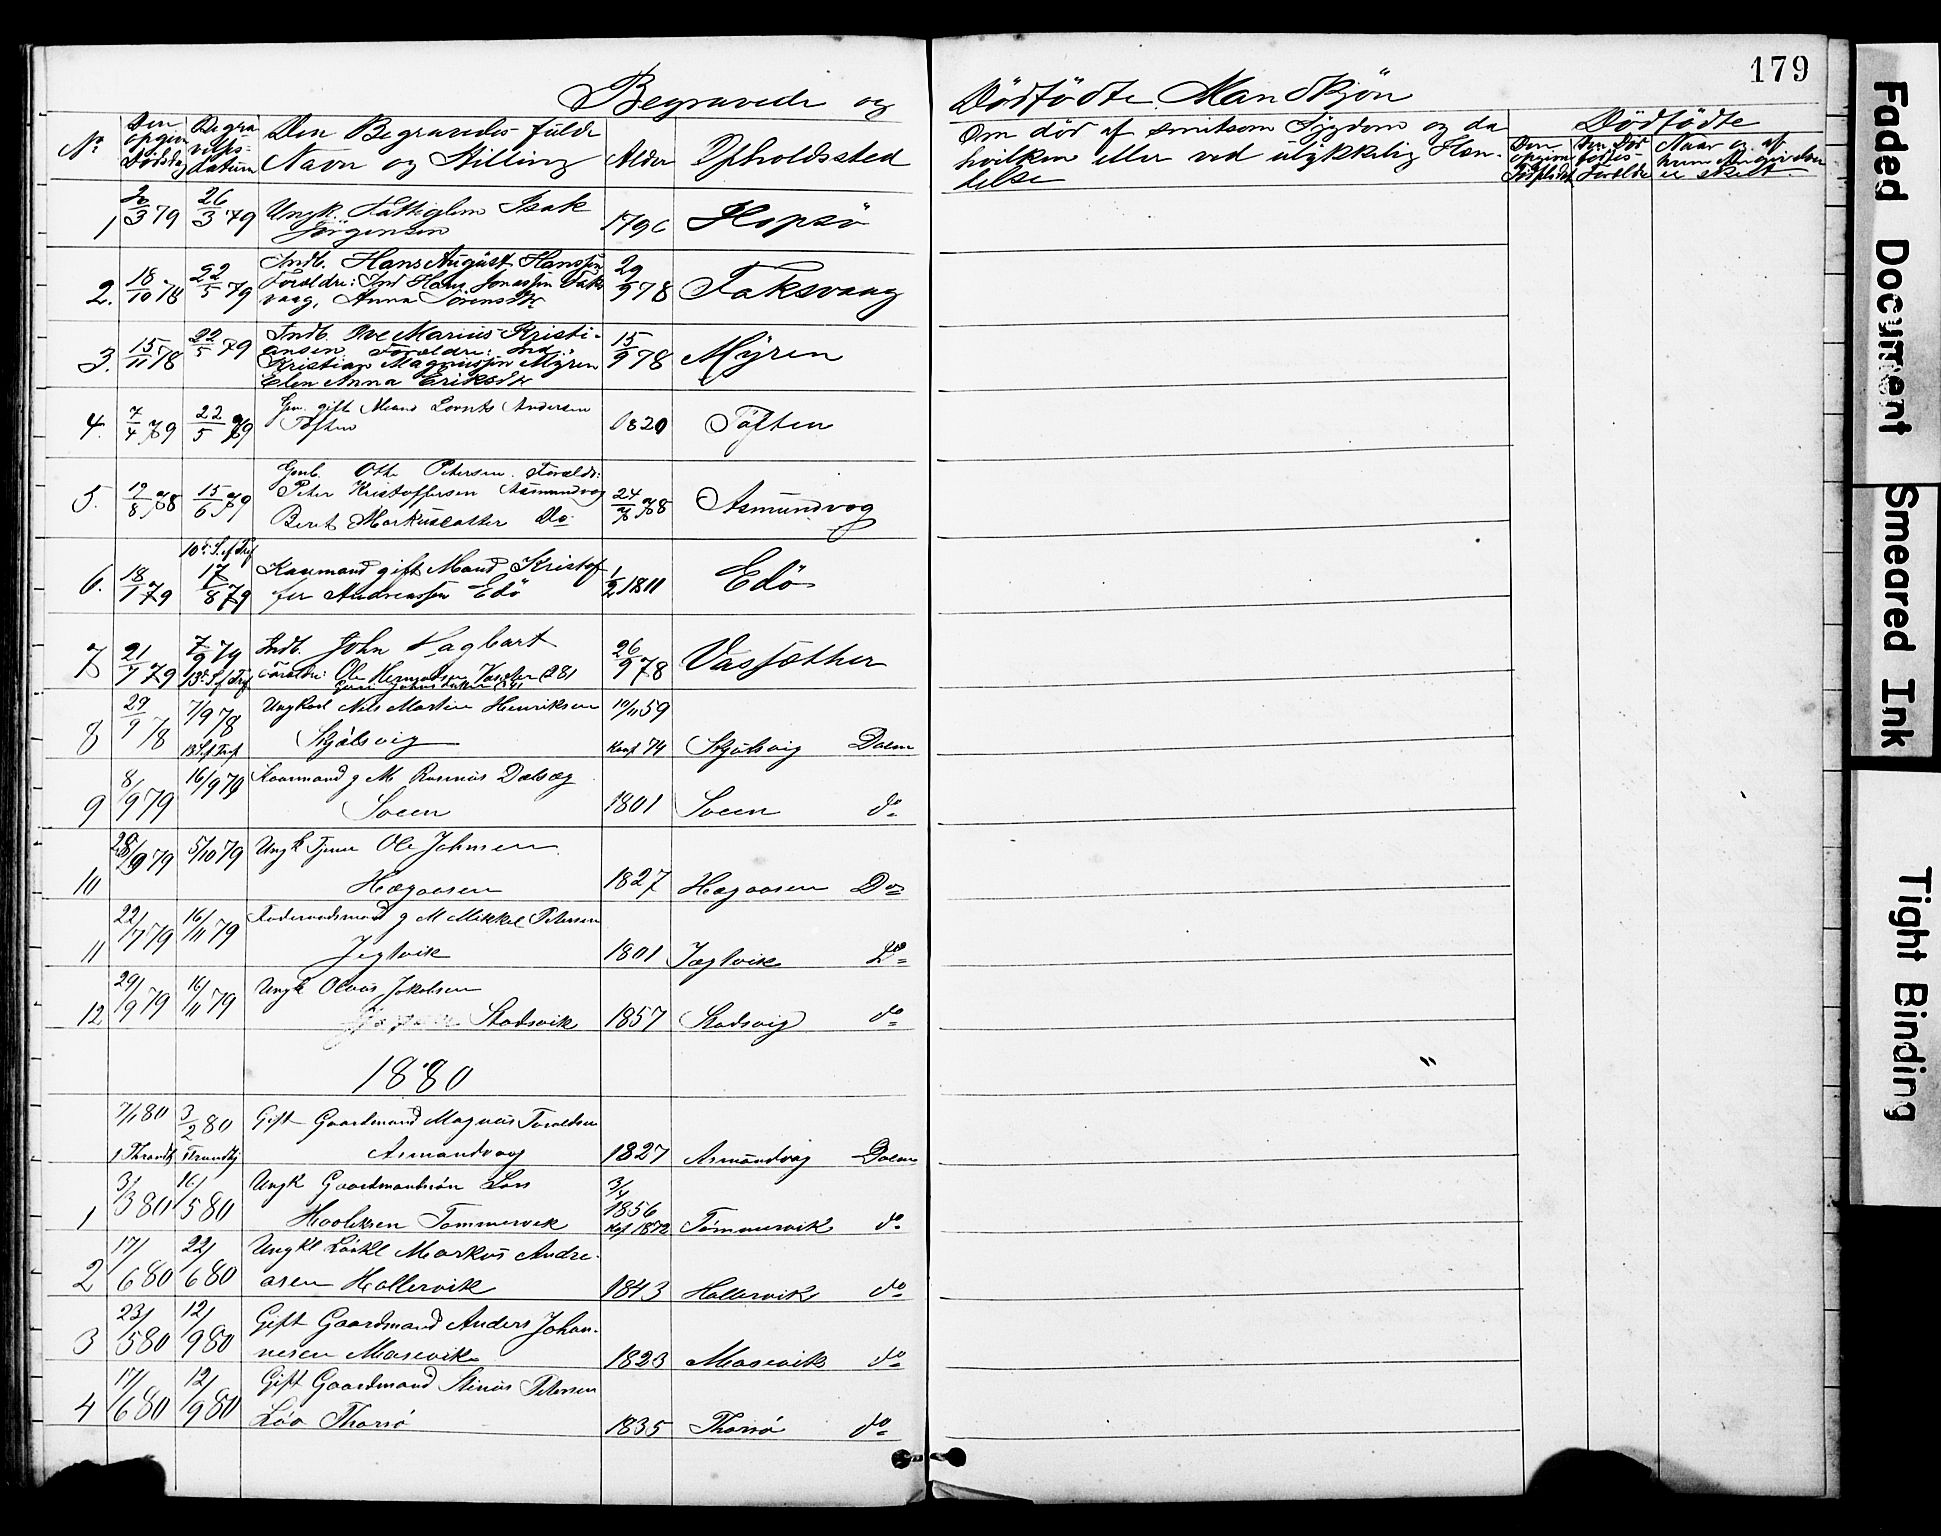 179
Begravede og Dødfødte Mandkjön
Nr
Den opgivne Dødsdag
Begravelsesdatum
Den Begravedes fulde Navn og Stilling
Alder
Opholdssted
Om död af smitsom Sygdom og da hvilken eller ved ulykkelig Hændelse
Dødfødte
1 26/3 79 Ungk. Fattiglem Isak Jörgensen 1796 Hopsö
2. 18/10 78 22/5 79 Indb. Hans August Hanssen
Forældre: Ind Hans Jonassen Faksvaag, Anna Sörensdtr
29/9 78 Faksvaag
3. 15/11 78 22/5 79 Indb. Ove Marius Kristiansen. Forældre: Ind.
Kristian Magnussen Myren
Elen Anna Eriksdtr
15/9 78 Myren
4. 7/4 79 22/5 79 gift Mand Lorents Andersen
Töften 1820 Töften
5. 19/8 78 15/6 79 Otte Petersen. Foreldr:
Peter Kristoffersen Asmundvog
Beret Markusdatter Do.
24/7 78 Asmundvog
6. 18/1 79 17/8 79 Kaarmand gift Mand Kristoffer Andreassen Edö
1/2 1811 Edö
7 21/1 79 7/9 79 Indb. John Dagbart
Foreldre: Ole
26/9 78 Vassæther
8 29/9 78 7/9 78 Ungkarl Nils Martin Henriksen
Skjælsvig 10/11 59
Konf 74 Skjælsvig Dolm
9 8/9 79 16/9 79 Kaarmand g M Rasmus Dalseg
Soeen 1801 Soeen do
10 28/9 79 5/10 79 Ungk Tjener Ole Johnsen
Hægaasen 1827 Hægaasen Do
11 22/7 79 16/11 79 Føderaadsmand g M Mikkel Petersen
Jegtvik 1801 Jægtvik Do
12 29/9 79 16/11 79 Ungk Olaus Jakobsen
Stadsvik 1857 Stadsvig do
1880
7/1 80 3/2 80 Gift Gaardmand Magnus Toraldsen
1 Thrandhj Trundhj Asmundvaag 1827 Asmundvag Dolm
1 3/3 80 16/5 80 Ungk Gaardmandssön Lars
Haakensen Tømmervik
3/4 1856
Kof 1872 Tømmervik do
2 17/6 80 22/6 80 Ungkl Löskl Markus Andreasen Hallervik
1843 Hallervik do
3 23/5 80 12/9 80 Gift Gaardmand Anders Johannesen Masevik
1823 Masevik do
4 17/6 80 12/9 80 Gift Gaardmand Stinus Petersen
Löa Thorsö 1835 Thorsö do
Faded Document
Smeared Ink
Tight Binding